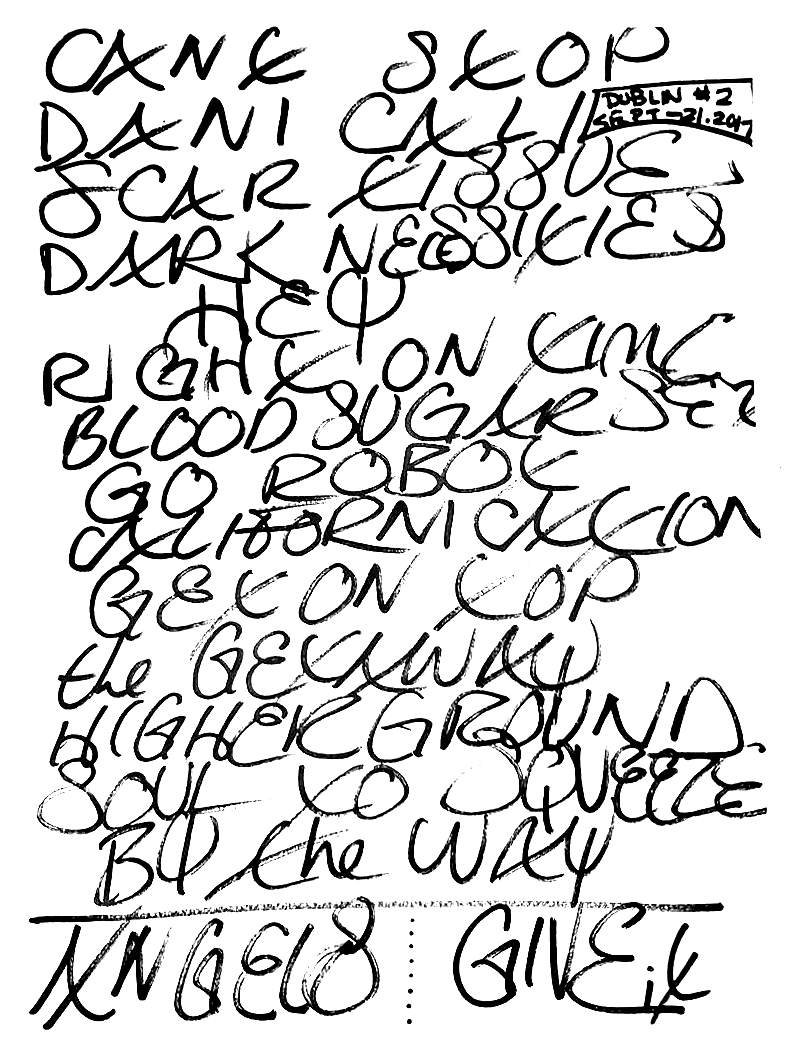 CANT STOP
DANI CALI
DUBLIN #2
SEPT-21.2017
SCAR TISSUE
DARK NECESSITIES
HEY
RIGHT ON TIME
BLOOD SUGAR SEX
GO ROBOT
CALIFORNICATION
GET ON TOP
the GETAWAY
HIGHER GROUND
SOUL TO SQUEEZE
BY the WAY
ANGELS GIVE it